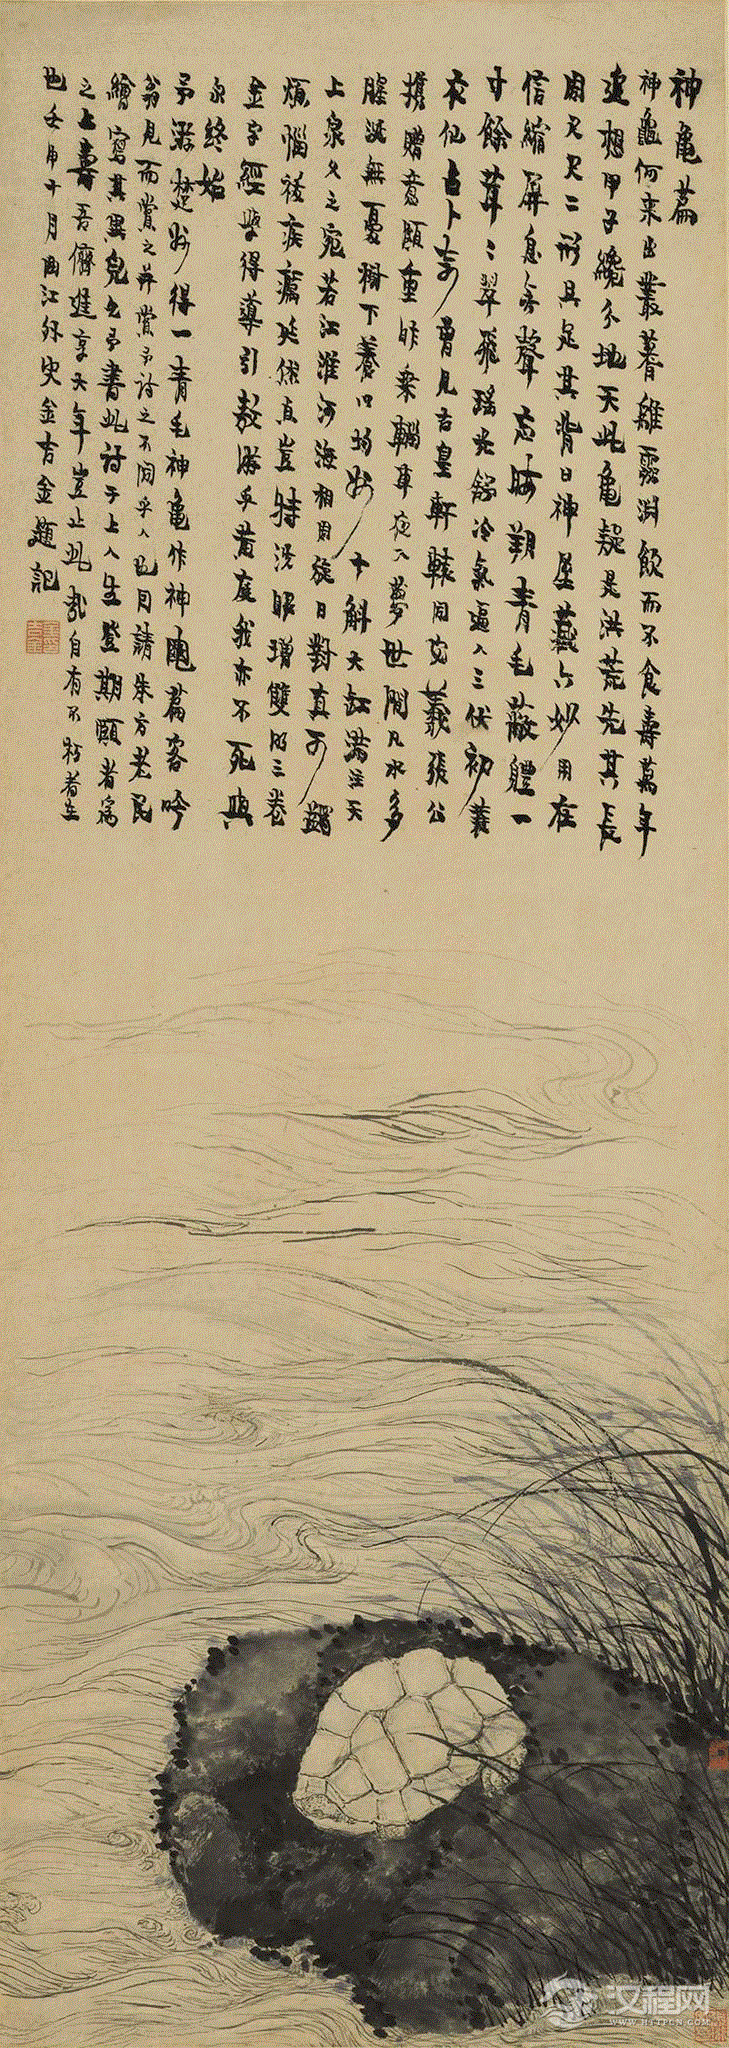 神龜篇
神龜何來出叢蓍離靈淵飲而不食壽萬年
遠想甲子纔分地天此龜疑是洪荒先其長
周尺尺二形具足其背曰神屋藏六妙用在
信縮屏息無聲忘晦朔青毛蔽體一
寸餘茸〻翠飛瑤光餘冷氣逼人三伏初蓍
衣他占卜吉曾見古皇軒轅同宓羲張公
攜贈意頗重昨乘輜車夜入夢世間凡水多
腥涎無憂樹下養以均州十斛大缸滿注天
上泉久之宛若江淮河海相周旋日對真可蠲
煩惱祓疾癘延僊真豈特洗眼增雙明三卷
金字經學得導引敖游乎黃庭我亦不死與
永終始
予游楚州得一青毛神龜作神龜篇客吟
翁見而賞之并賞予詩之不同乎人也因請朱方老民
繪寫其異兒乞予書此詩于上人生登期頤者為
之上壽吾儕進享大年豈止此哉自有不朽者在
也壬申十月曲江外史金吉金題記
汉程网
WWW.HTTPCN.COM